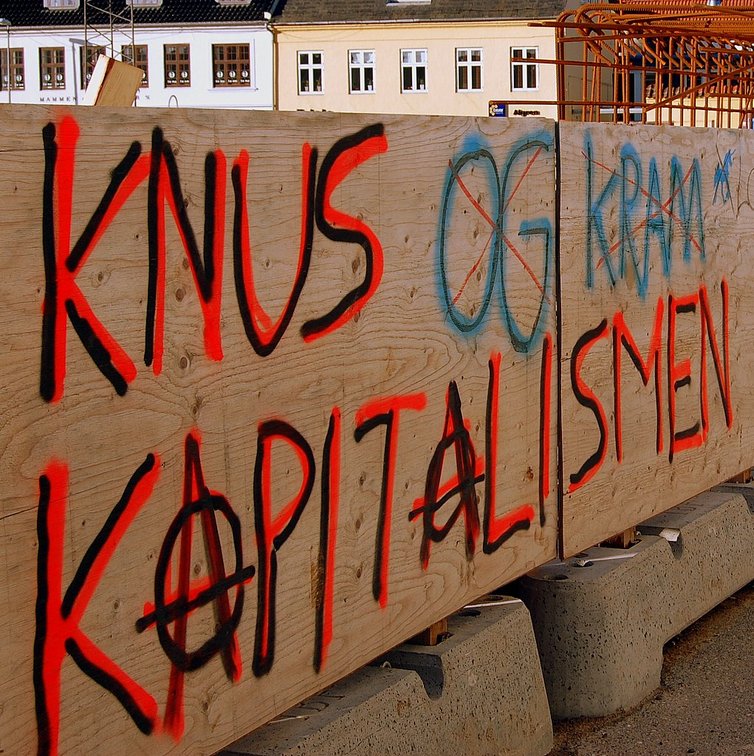 KNUS OG KRAM
KAPITALISMEN